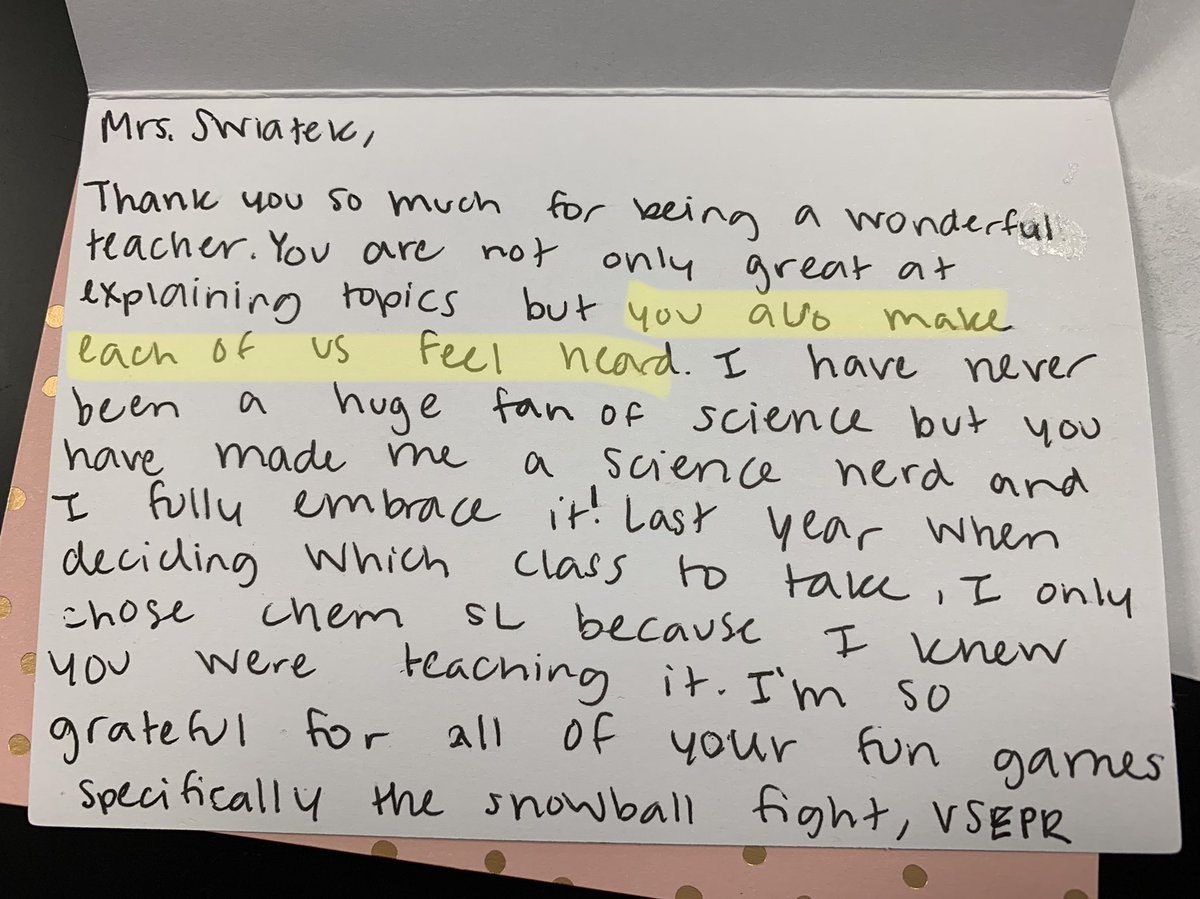 Mrs. Swiatek,
Thank you so much for being a wonderful
teacher. You are not only great at
explaining topics but you also make
each of us feel heard. I have never
been a huge fan of science but you
have made me a science nerd and
I fully embrace it! Last year when
deciding which class to take, I only
chose chem SL because I knew
you were teaching it. I'm so
grateful for all of your fun games
specifically the snowball fight, VSEPR